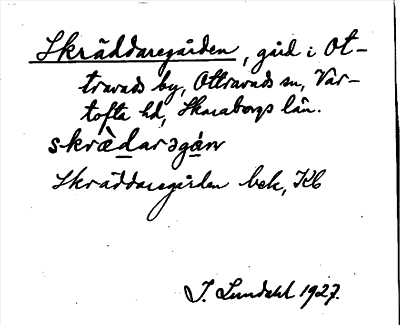 Skräddaregården, gård i Ot-
travads by, Ottravads sn, Var-
tofta hd, Skaraborgs län.
skrèdarəgán
Skräddaregården bek, Kb
I. Lundahl 1927.